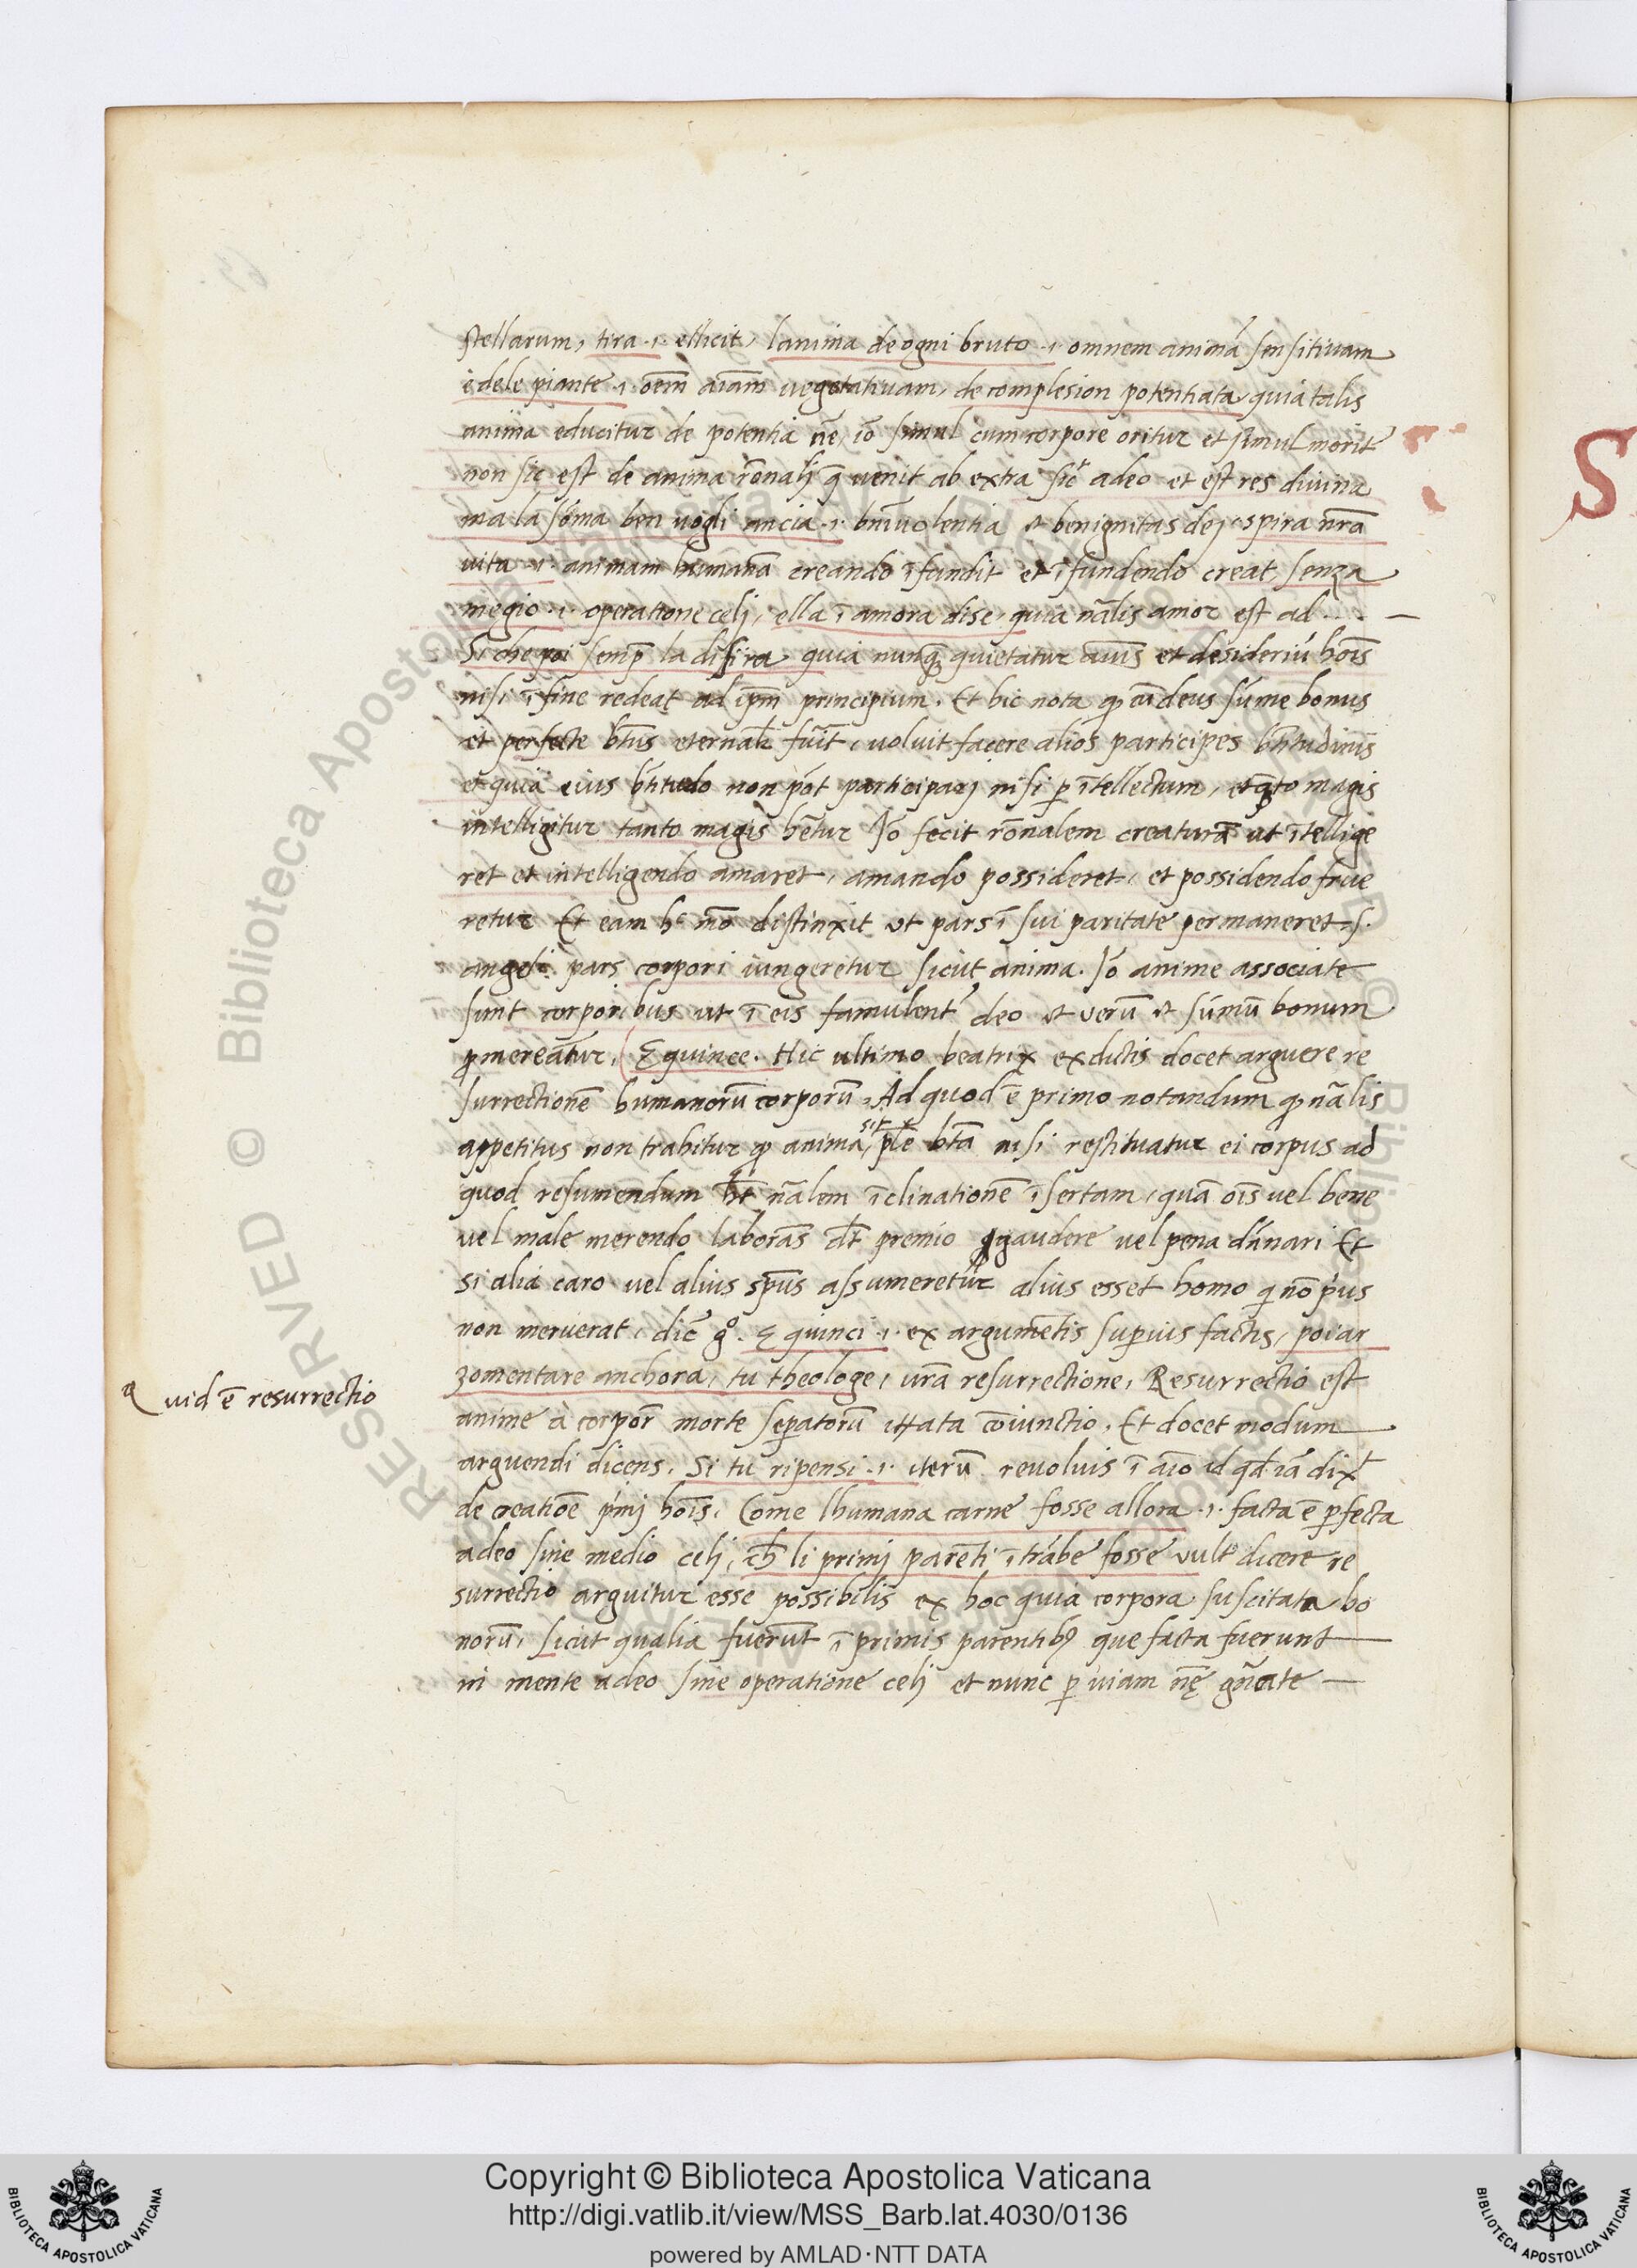 stellarum, tira .i. ellicit, lanima de ogni bruto .i. omnem animã sensitivam
e dele piante .i. oẽm aiam vegetativam, de complesion potentiata quia talis
anima educitur de potentia nẽ, iõ simul cum corpore oritur et simul morit
non sic est de anima rõnali q̃ venit ab extra adeo et est res divina
ma la sõma ben vogli ancia .i. benivolentia et benignitas dej, spira nrã
vita .i. animam humanã creando ĩfundit et ĩfundendo creat, senza
megio .i. operatione celj, ella ĩamora di se, quia nãlis amor est ad .... —
Si che poi semp̃ la disira quia nunq̃ quietatur et desideriũ hoĩs
nisi ĩ fine redeat ad ip̃m principium. Et hic nota deus sũme bonus
et perfecte btũs eternalr fuit, voluit facere alios participes btitudinis
et quia eius btitudo non põt participarj nisi p ĩtellectum, et q̃to magis
intelligitur tanto magis hẽtur Jõ fecit rõnalem creaturã ut ĩtellige
ret et intelligendo amaret, amando possideret, et possidendo frue
retur Et eam hc mõ distinxit ut pars ĩ sui paritate permaneret .s.
angeli pars corpori iungeretur sicut anima. Jõ anime associate
sunt corporibus ut ĩ eis famulent deo et verũ et sũmũ bonum
p̃mereãtur, E quince. Hic ultimo beatrix ex dictis docet arguere re
surrectionẽ humanorũ corporũ, Ad quod ẽ primo notandum nãlis
appetitus non trahitur anima sit plẽ btã nisi restituatur ei corpus ad
quod resumendum ht nãlem ĩclinationẽ ĩsertam, quã oĩs vel bene
vel male merendo laborãs dt premio gaudere vel pena dãnari Et
si alia caro vel alius spũs assumeretur alius esset homo q nõ prius
non meruerat, dic g°. E quinci .i. ex argumẽtis superius factis, poi ar
zomentare anchora, tu theologe, vrã resurrectione, Resurrectio est
quid ẽ resurrectio
anime à corpor morte separatorũ ittata cõiunctio, Et docet modum
arguendi dicens. Si tu ripensi .i. iterũ revolvis ĩ aĩo id qd iã dixt
de creatiõe pimj hoĩs. Come lhumana carne fosse allora .i. facta ẽ pfecta
adeo sine medio celj, ch li primj parẽti ĩtrãbe fosse vult dicere re
surrectio arguitur esse possibilis ex hoc quia corpora suscitata bo
norũ, sicut qualia fuerũt ĩ primis parentib9 que facta fuerunt
in mente adeo sine operatione celj et nunc p viam nẽ gñate —
S
Copyright © Biblioteca Apostolica Vaticana
http://digi.vatlib.it/view/MSS_Barb.lat.4030/0136
powered by AMLAD·NTT DATA
BIBLIOTECA APOSTOLICA VATICANA
BIBLIOTECA APOSTOLICA VATICANA